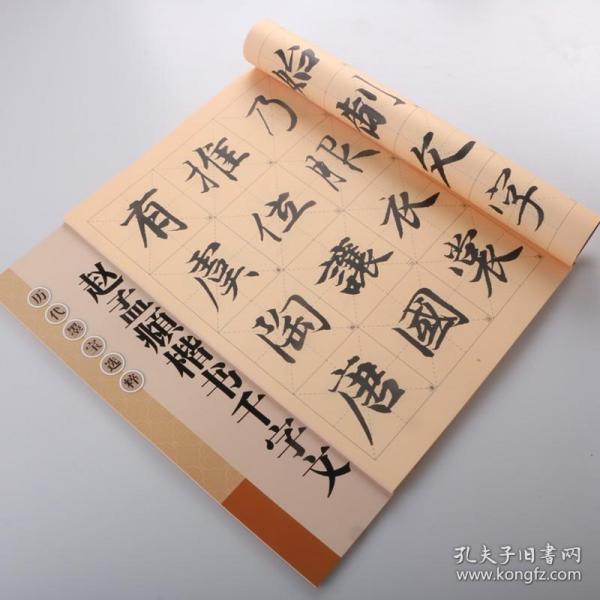 始制文字
乃服衣裳
推位讓國
有虞陶唐
赵孟頫楷书千字文
历代墨宝选粹
孔夫子旧書网
www.kongfz.com